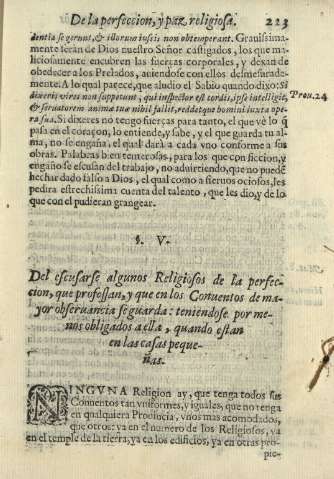 De la perfeccion, y paz religiosa. 223
dentia se gerunt, & illorum iussis non obtemperant. Grauissima-
mente seràn de Dios nuestro Señor castigados, los que ma-
liciosamente encubren las fuerças corporales, y dexan de
obedecer a los Prelados, auiendose con ellos desmesurade-
mente. A lo qual parece, que aludio el Sabio quando dixo: Si
dixeris vires non suppetunt, qui inspector est cordis, ipse intelligit, Prou. 24
& seruatorem animæ tuæ nihil fallit, reddetque homini iuxta ope-
ra sua. Si dixeres no tengo fuerças para tanto, el que vè lo q̃
passa en el coraçon, lo entiende, y sabe, y el que guarda tu al-
ma, no se engaña, el qual darà a cada vno conforme a sus
obras. Palabras bien temerosas, para los que con ficcion, y
engaño se escusan del trabajo, no aduirtiendo, que no puedẽ
hechar dado falso a Dios, el qual como a sieruos ociosos, les
pedira estrechissima cuenta del talento, que les dio, y de lo
que con el pudieran grangear.
§. V.
Del escusarse algunos Religiosos de la perfec-
cion, que professan, y que en los Conuentos de ma-
yor obseruancia se guarda: teniendose por me-
nos obligados a ella, quando estan
en las casas peque-
ñas.
NINGVNA Religion ay, que tenga todos sus
Conuentos tan vniformes, y iguales, que no tenga
en qualquiera Prouincia, vnos mas acomodados,
que otros: ya en el numero de los Religiosos, ya
en el temple de la tierra, ya en los edificios, ya en otras pro-
pie-